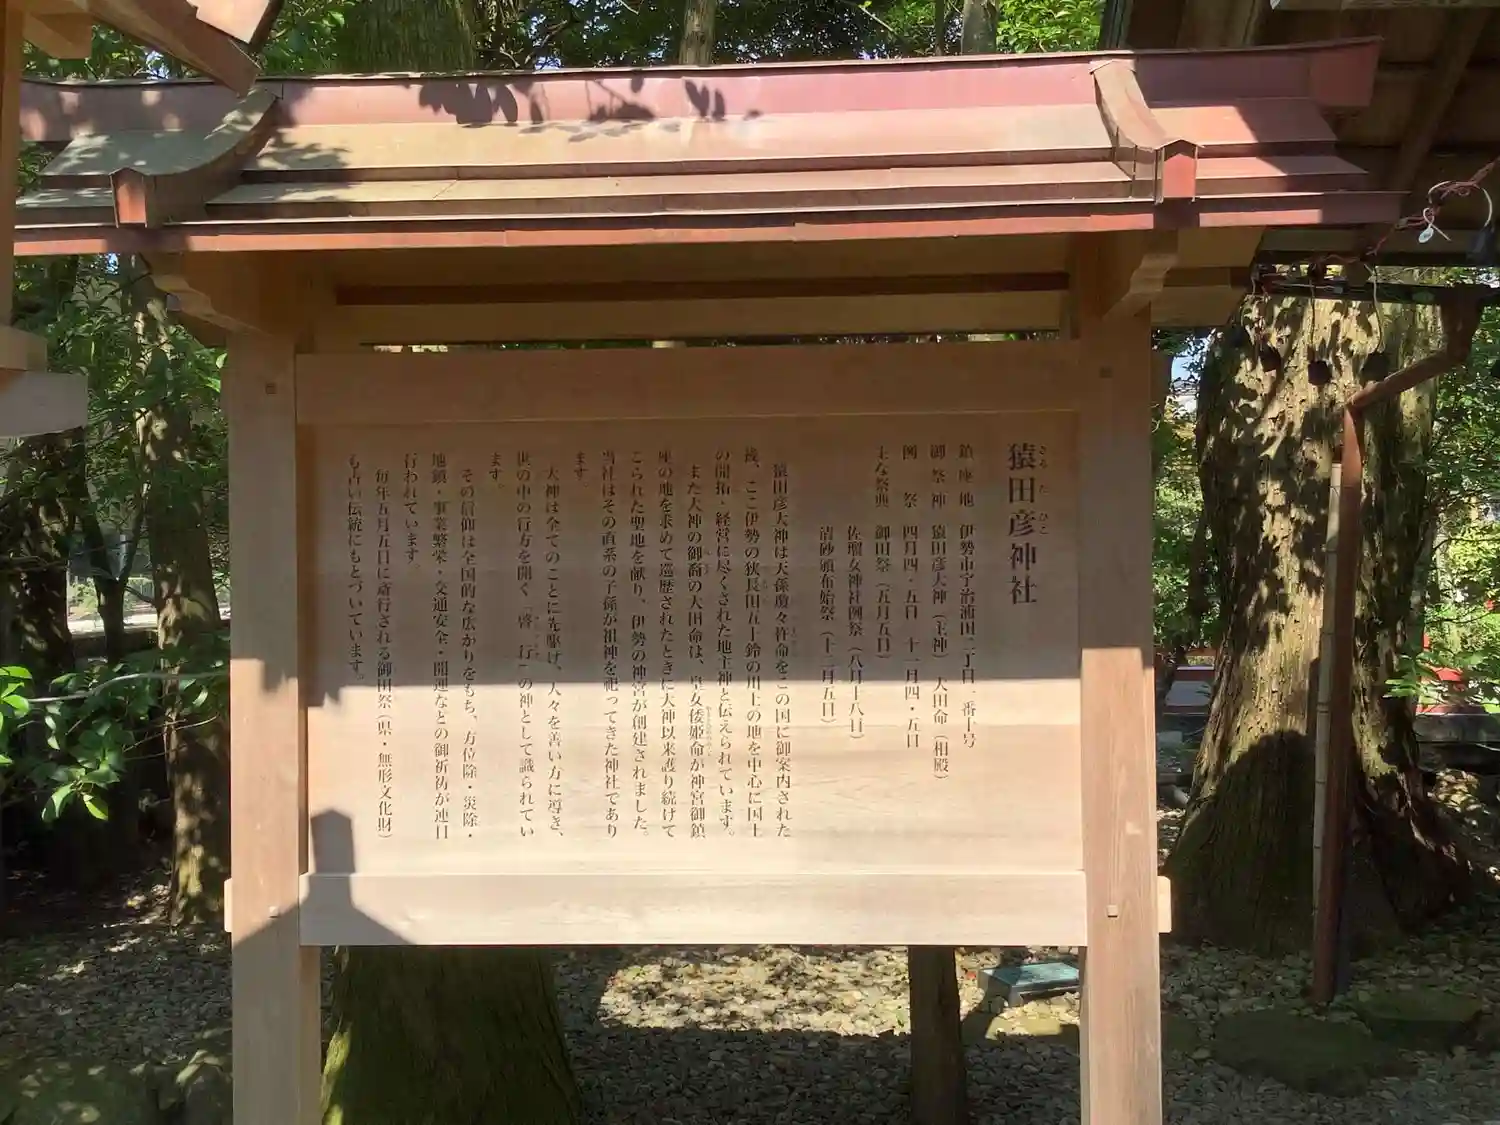 猿田彦神社
さるたひこ
鎮座地 伊勢市宇治浦田二丁目一番十号
御祭神 猿田彦大神（主神） 大田命（相殿）
例祭 四月四・五日 十一月四・五日
主な祭典 御田祭（五月五日）
佐瑠女神社例祭（八月十八日）
清砂頒布始祭（十二月五日）
猿田彦大神は天孫瓊々杵命をこの国に御案内された
後、ここ伊勢の狭長田五十鈴の川上の地を中心に国土
の開拓・経営に尽くされた地主神と伝えられています。
また大神の御裔の大田命は、皇女倭姫命が神宮御鎮
座の地を求めて巡歴されたときに大神以来護り続けて
こられた聖地を献り、伊勢の神宮が創建されました。
当社はその直系の子孫が祖神を祀ってきた神社であり
ます。
大神は全てのことに先駆け、人々を善い方に導き、
世の中の行方を開く「啓行」の神として識られてい
ます。
その信仰は全国的な広がりをもち、方位除・災除・
地鎮・事業繁栄・交通安全・開運などの御祈祷が連日
行われています。
毎年五月五日に斎行される御田祭（県・無形文化財）
も古い伝統にもとづいています。